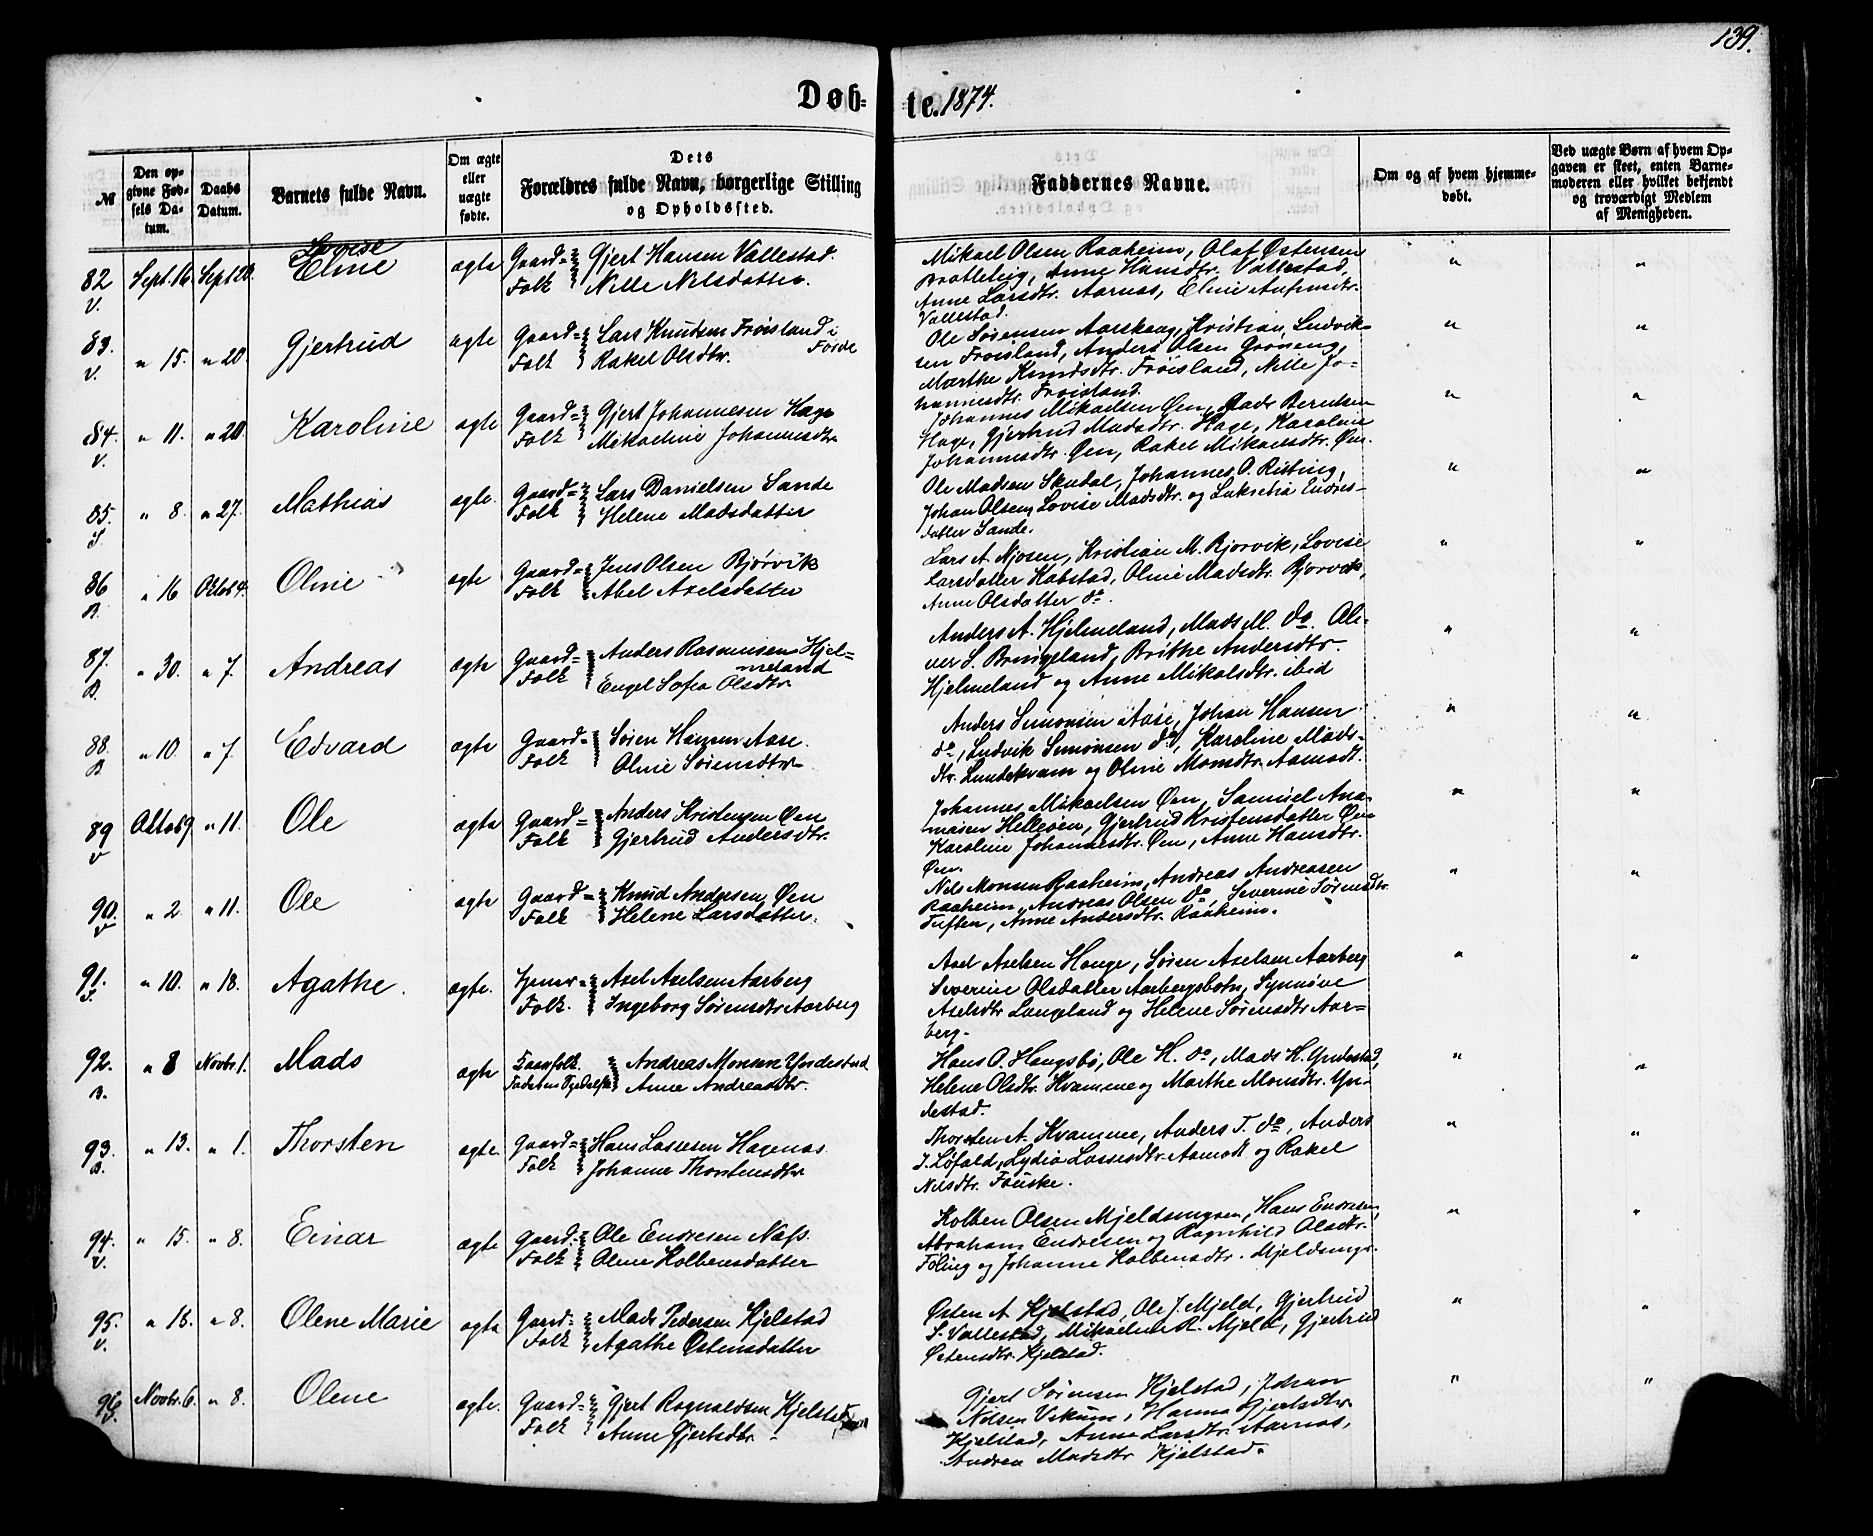 139.
Døb-te. 1874.
№
Den op-
givne Fød-
sels Da-
tum.
Daabs
Datum.
Barnets fulde Navn.
Om ægte
eller
uægte
fødte.
Dets
Forældres fulde Navn, borgerlige Stilling
og Opholdssted.
Faddernes Navne.
Om og af hvem hjemme-
døbt.
Ved uægte Børn af hvem Op-
gaven er skeet, enten Barne-
moderen eller hvilket bekjendt
og troværdigt Medlem
af Menigheden.
82 V. Sept. 16. Sept. 20. Lovise
Eline ægte Gaard= Gjert Hansen Vallestad.
Folk Nille Nilsdatter.
Mikael Olsen Raaheim, Olaf Østensen
Bratteleig, Anne Hansdtr. Vallestad,
Anne Larsdtr. Aarnæs, Eline Anfinsdtr.
Vallestad.
83. V. " 15. " 20. Gjertrud ægte Gaard= Lars Knudsen Frøisland i
Folk Rakel Olsdtr. Førde
Ole Sørensen Aarskaug, Kristian Ludvik-
sen Frøisland, Anders Olsen Grøneng,
Marthe Knudsdtr. Frøisland, Nille Jo-
hannesdtr. Frøisland.
84. V. " 11. " 20. Karoline ægte Gaard= Gjert Johannesen Hage
Folk Mikaeline Johannesdtr
Johannes Mikaelsen Øen, Mads Berntsen
Hage, Gjertrud Madsdtr. Hage, Karoline
Johannesdtr. Øen, Rakel Mikaelsdtr. Øen.
85. S " 8. " 27. Mathias ægte. Gaard= Lars Danielsen Sande
Folk Helene Madsdatter
Ole Madsen Skudal, Johannes O. Risting,
Johan Olsen, Lovise Madsdtr. og Lukretia Endres-
datter Sande.
86 B. " 16 Oktob 4. Oline ægte Gaard= Jens Olsen Bjørvik
Folk Abel Axelsdatter
Lars A. Njøsen, Kristian M. Bjørvik, Lovise
Larsdatter Kobstad, Oline Madsdtr. Bjørvik,
Anne Olsdatter do.
87. B. " 30. " 7. Andreas ægte Gaard= Anders Rasmusen Hjel=
meland
Folk Engel Sofia Olsdtr.
Anders A. Hjelmeland, Mads M. do. Oli-
ver S. Bringeland, Brithe Andersdtr.
Hjelmeland og Anne Mikalsdtr. ibid
88. B " 10. " 7. Edvard ægte Gaard= Søren Hansen Aase.
Folk Oline Sørensdtr
Anders Simonsen Aase, Johan Hansen
do, Ludvik Simonsen do, Karoline Mads-
dtr. Lundekvam og Oline Monsdtr. Aamodt.
89 V Oktob 9. " 11. Ole ægte Gaard= Anders Kristensen Øen
Folk Gjertrud Andersdtr.
Johannes Mikaelsen Øen, Samuel Ana-
niasen Helleøen, Gjertrud Kristensdatter Øen
Karoline Johannesdtr. Øen, Anne Hansdtr.
Øen.
90. V " 2 " 11. Ole ægte Gaard= Knud Andersen Øen
Folk Helene Larsdatter.
Nils Monsen Raaheim, Andreas Andreasen
Raaheim, Andreas Olsen do, Severine Sørensdtr
Tuften, Anne Andersdtr. Raaheim.
91. S. " 10. " 18. Agathe. ægte. Axel Axelsen Aarberg
Folk. Ingeborg Sørensdtr Aarberg
Axel Axelsen Hauge, Søren Axelsen Aarberg
Severine Olsdatter Aarbergsbotn, Synnøve
Axelsdtr Langeland og Helene Sørensdtr Aar=
berg.
92. B. " 8 Novbr. 1. Mads ægte Andreas Monsen Yndestad
Anne Andreasdtr.
Hans O. Haugsbø, Ole H. do, Mads H. Yndestad,
Helene Olsdtr. Kvamme og Marthe Monsdtr. Yn-
destad.
93. B. " 13. " 1. Thorsten ægte. Gaard= Hans Lassesen Hagenæs.
Folk Johanne Thorstensdtr
Thorsten A. Kvamme, Anders T. do, Anders
J. Løfald, Lydia Lassesdtr. Aamodt og Rakel
Nilsdtr. Fauske.
94. V. " 15. " 8. Einar ægte Gaard= Ole Endresen Næss.
Folk Oline Kolbensdatter
Kolben Olsen Mjeldsungen, Hans Endresen
Abraham Endresen og Ragnhild Olsdtr.
Føling og Johanne Kolbensdtr. Mjeldsung.
95. V. " 18. " 8. Olene Marie ægte Gaard= Mads Pedersen Kjelstad
Folk Agathe Østensdatter
Østen A. Kjelstad, Ole J. Mjeld, Gjertrud
S. Vallestad, Mikaeline R. Mjeld, Gjertrud
Østensdtr. Kjelstad.
96. Novbr. 6. " 8. Olene ægte. Gaard= Gjert Ragnaldsen Kjelstad
Folk Anne Gjertsdtr.
Gjert Sørensen Kjelstad, Johan
Nilsen Vikum, Hanna Gjertsdtr.
Kjelstad, Anne Larsdtr. Aarnæs,
Andrea Madsdtr Kjelstad.